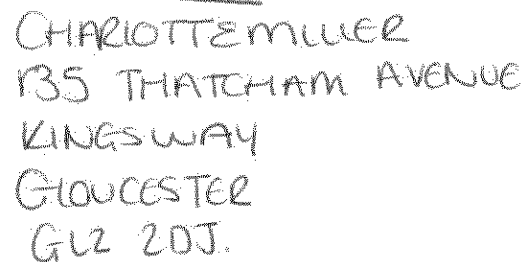 CHARLOTTE MILLER
135 THATCHAM AVENUE
KINGSWAY
GLOUCESTER
GL2 2DJ.